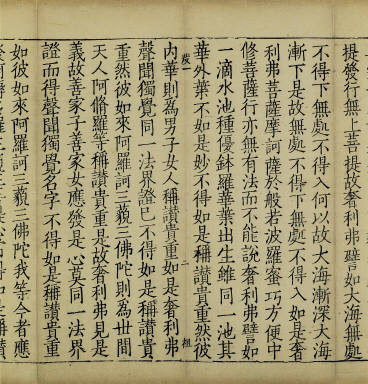 提發行無上菩提故奢利弗譬如大海無處
不得下無處不得入何以故大海漸深大海
漸下是故無處不得下無處不得入如是奢
利弗菩薩摩訶薩於般若波羅蜜巧方便中
修菩薩行亦無有法而不能說奢利弗譬如
一滴水池種優鉢羅華華出生雖同一池其
華外葉不如是妙不得如是稱讚貴重然彼
二
內華則為男子女人稱讚貴重如是奢利弗
聲聞獨覺同一法界證已不得如是稱讚貴
重然彼如來阿羅訶三藐三佛陀則為世間
天人阿脩羅等稱讚貴重是故奢利弗見是
義故善家子善家女應發是心莫同一法界
證而得聲聞獨覺名字不得如是稱讚貴重
如彼如來阿羅訶三藐三佛陀我等今者應